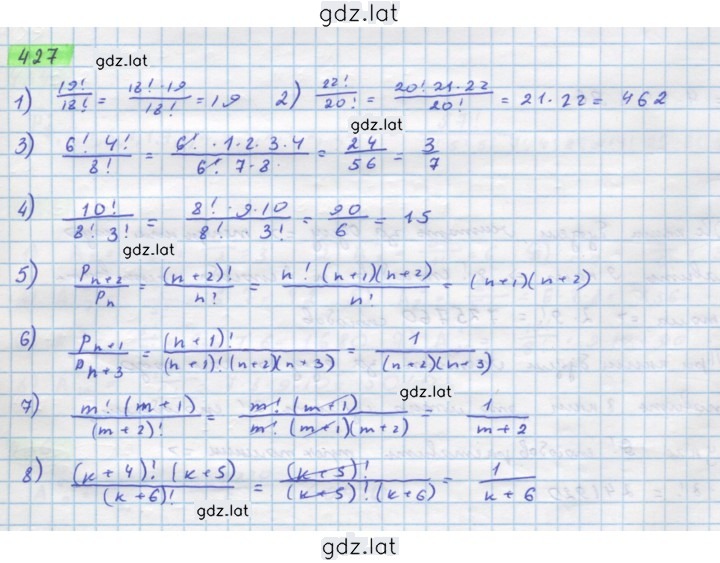 gdz.lat
427 gdz.lat
1) 19!/18! = 18!·19/18! = 19 2) 22!/20! = 20!·21·22/20! = 21·22 = 462
gdz.lat
3) 6! 4!/8! = 6!·1·2·3·4/6! 7·8 = 24/56 = 3/7
4) 10!/8! 3! = 8!·9·10/8! 3! = 90/6 = 15
gdz.lat
5) Pn+2/Pn = (n+2)!/n! = n! (n+1)(n+2)/n! = (n+1)(n+2)
6) Pn+1/Pn+3 = (n+1)!/(n+1)! (n+2)(n+3) = 1/(n+2)(n+3)
gdz.lat
7) m! (m+1)/(m+2)! = m! (m+1)/m! (m+1)(m+2) = 1/m+2
8) (к+4)! (к+5)/(к+6)! = (к+5)!/(к+5)! (к+6) = 1/к+6
gdz.lat
gdz.lat